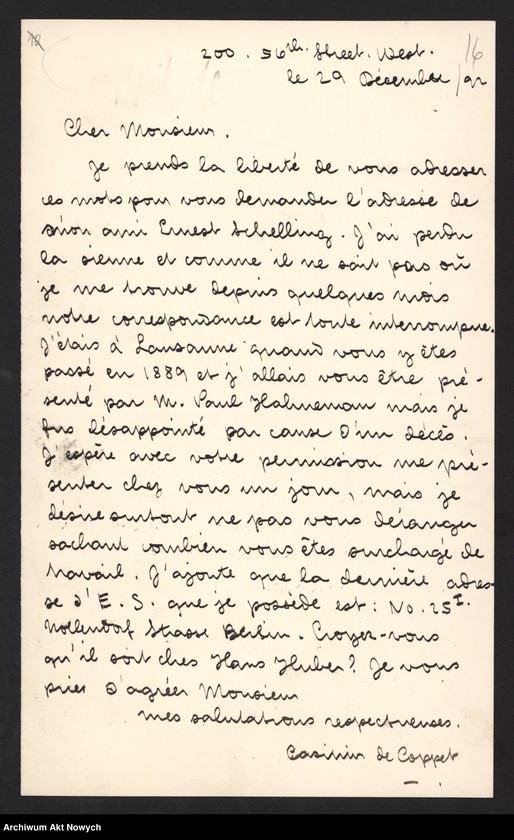 16
200. 56th. Street. West.
le 29 Décember /92
Cher Monsieur.
Je prends la liberté de vous adresser
ces mots pour vous demander l'adresse de
mon ami Ernest Schelling. J'ai perdu
la sienne et comme il ne sait pas où
je me trouve depuis quelques mois
notre correspondance est toute interrompue.
J'étais à Lausanne quand vous y êtes
passé en 1889 et j'allais vous être pré-
senté par M. Paul Hahneman mais je
fus désappointé par cause d'un décès.
J'espère avec votre permission me pré-
senter chez vous un jour, mais je
désire surtout ne pas vous déranger
sachant combien vous êtes surchargé de
travail. J'ajoute que la dernière adres-
se d'E. S. que je possède est: No. 25I.
Nollendorf Strasse Berlin. Croyez-vous
qu'il soit chez Hans Huber? Je vous
pries d'agréer Monsieur
mes salutations respectueuses.
Casimir de Coppet
Archiwum Akt Nowych